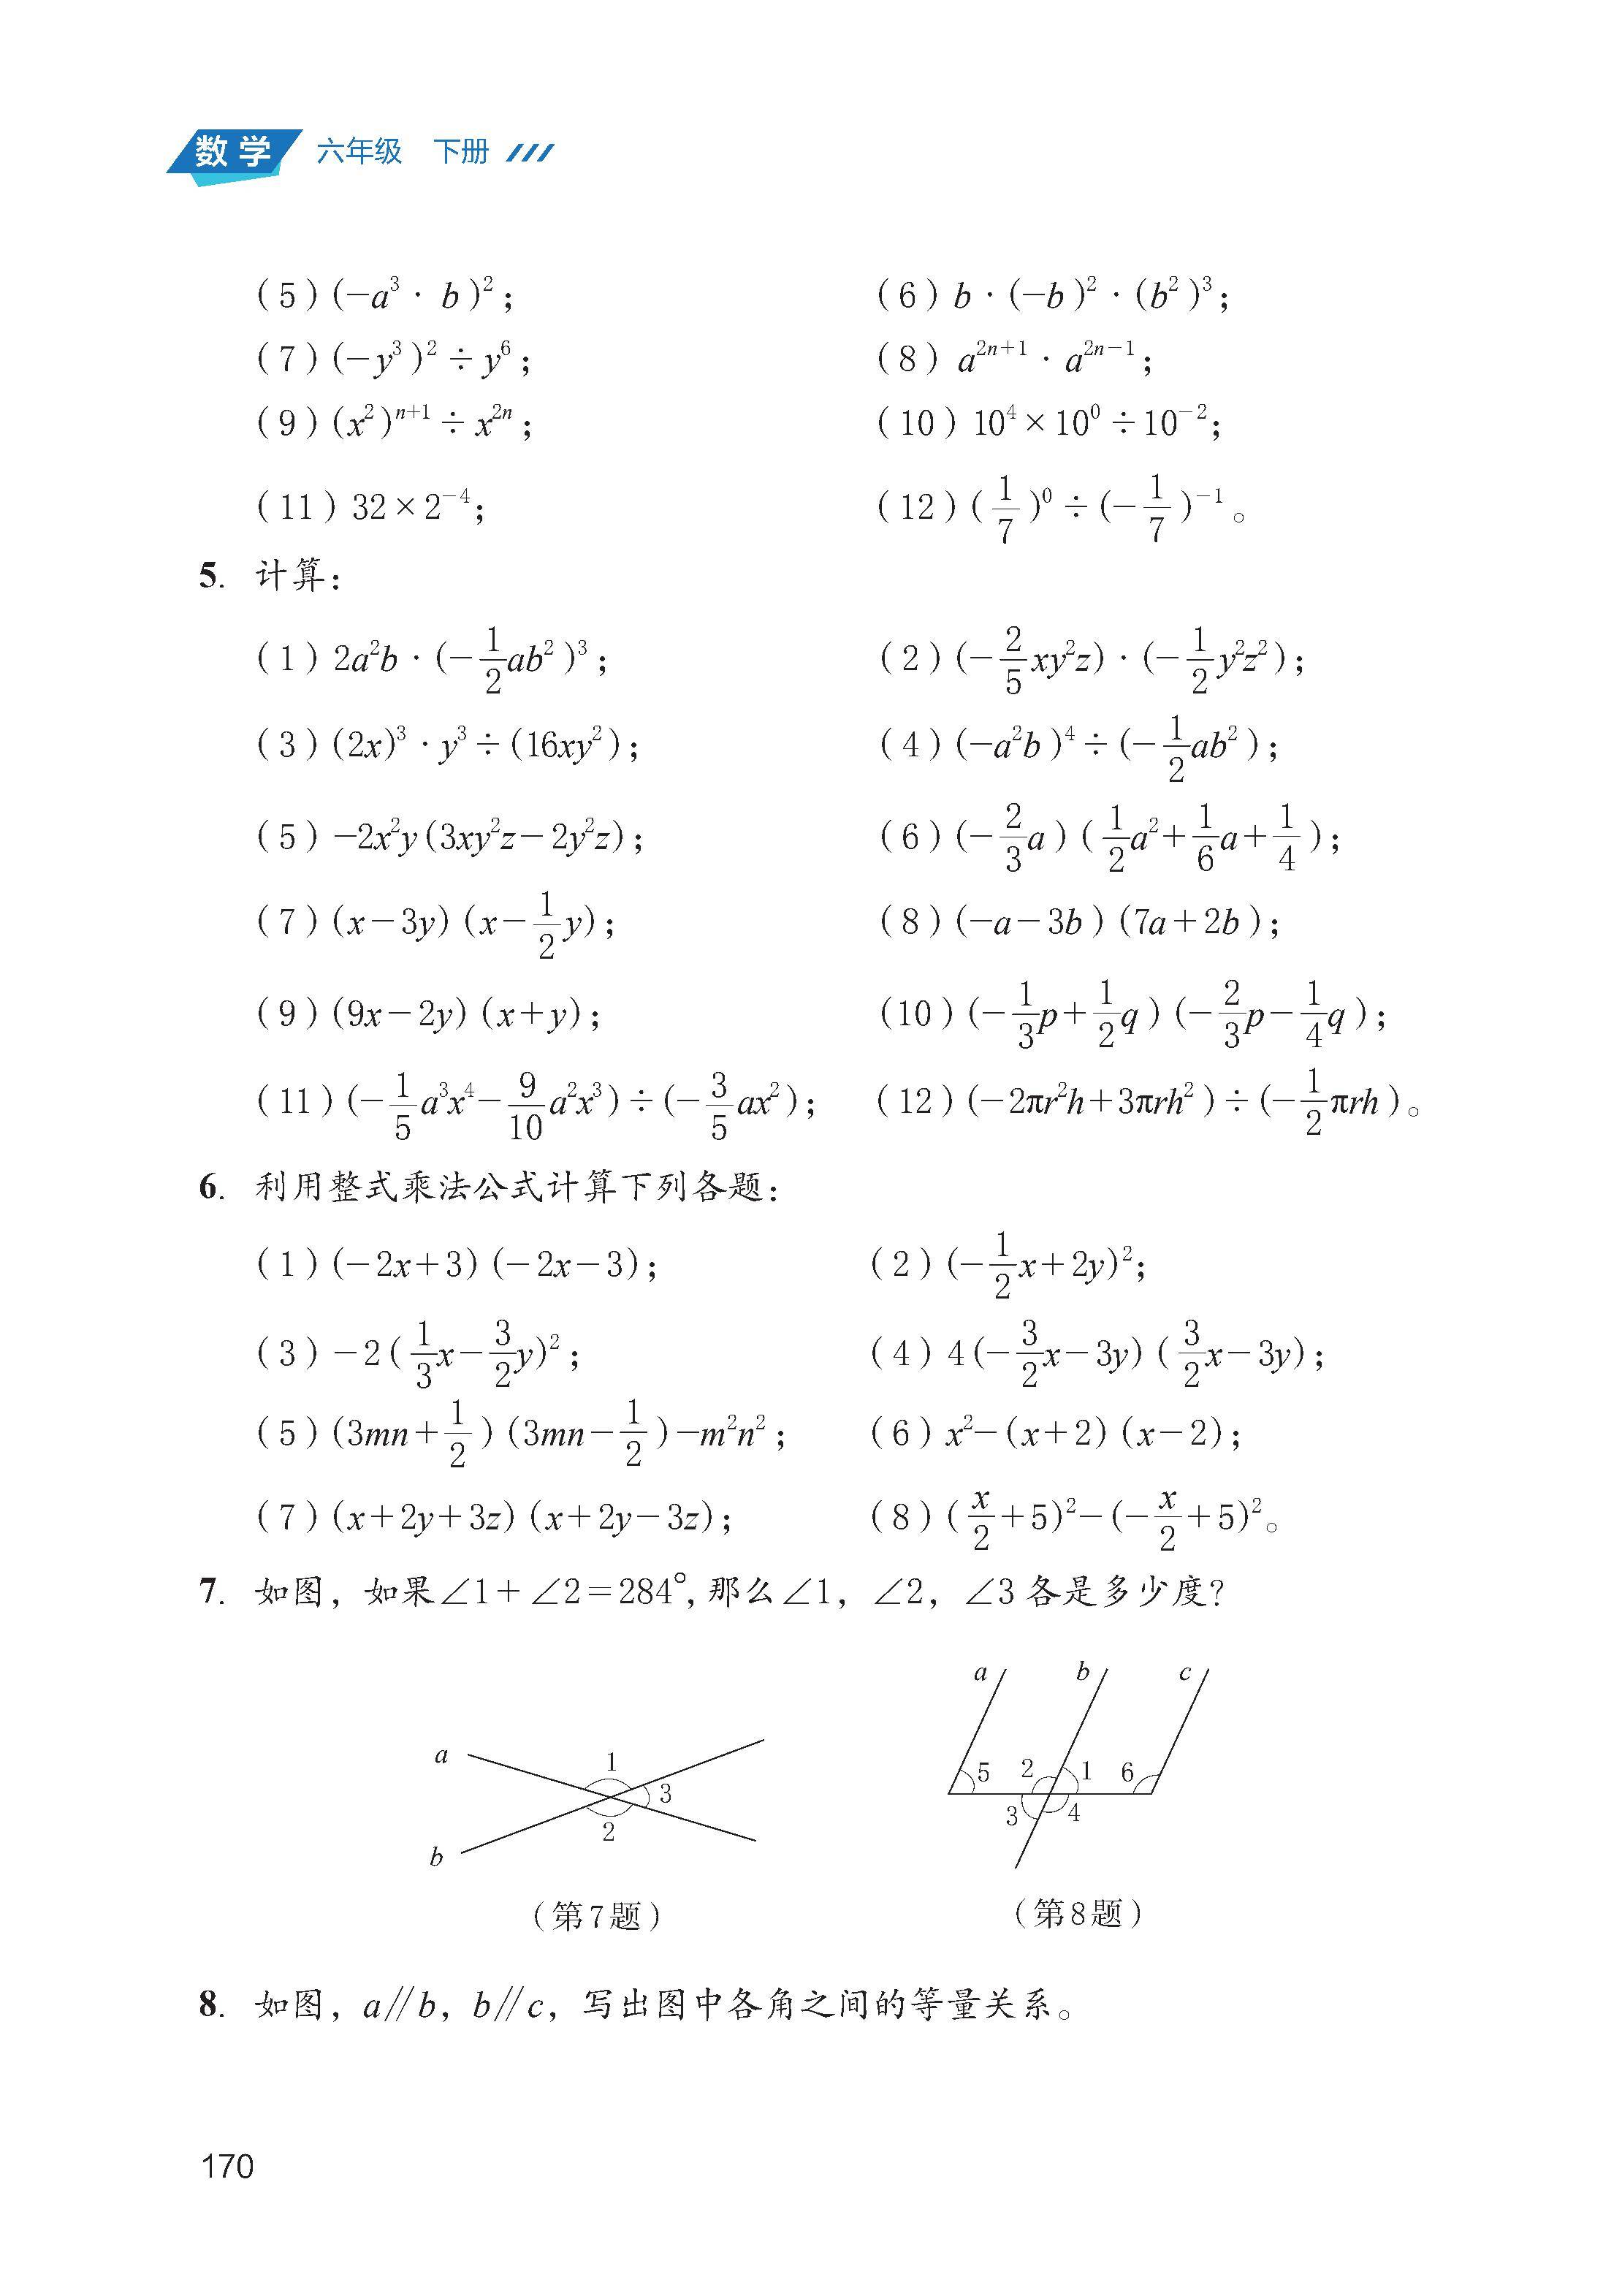 数学 六年级 下册
(5)(-a³·b)²; (6)b·(-b)²·(b²)³;
(7)(-y³)²÷y⁶; (8)a²ⁿ⁺¹·a²ⁿ⁻¹;
(9)(x²)ⁿ⁺¹÷x²ⁿ; (10)10⁴×10⁰÷10⁻²;
(11)32×2⁻⁴; (12)(1/7)⁰÷(-1/7)⁻¹。
5. 计算:
(1)2a²b·(-1/2ab²)³; (2)(-2/5xy²z)·(-1/2y²z²);
(3)(2x)³·y³÷(16xy²); (4)(-a²b)⁴÷(-1/2ab²);
(5)-2x²y(3xy²z-2y²z); (6)(-2/3a)(1/2a²+1/6a+1/4);
(7)(x-3y)(x-1/2y); (8)(-a-3b)(7a+2b);
(9)(9x-2y)(x+y); (10)(-1/3p+1/2q)(-2/3p-1/4q);
(11)(-1/5a³x⁴-9/10a²x³)÷(-3/5ax²); (12)(-2πr²h+3πrh²)÷(-1/2πrh)。
6. 利用整式乘法公式计算下列各题:
(1)(-2x+3)(-2x-3); (2)(-1/2x+2y)²;
(3)-2(1/3x-3/2y)²; (4)4(-3/2x-3y)(3/2x-3y);
(5)(3mn+1/2)(3mn-1/2)-m²n²; (6)x²-(x+2)(x-2);
(7)(x+2y+3z)(x+2y-3z); (8)(x/2+5)²-(-x/2+5)²。
7. 如图,如果∠1+∠2=284°,那么∠1,∠2,∠3各是多少度?
a
1
3
2
b
(第7题)
a b c
5 2 1 6
3 4
(第8题)
8. 如图,a∥b,b∥c,写出图中各角之间的等量关系。
170